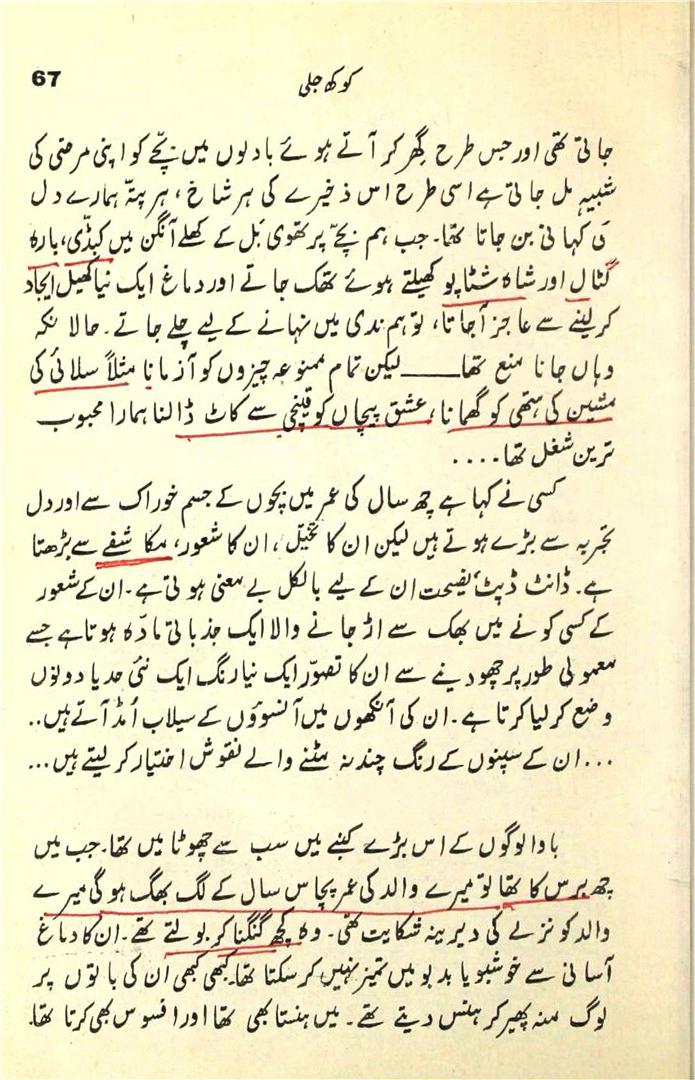 67
کوکھ جلی
جاتی تھی اور جس طرح گھر کر آتے ہوئے بادلوں میں بچّے کو اپنی مرضی کی
شبیہہ مل جاتی ہے اسی طرح اس ذخیرے کی ہر شاخ، ہر پتّہ ہمارے دل
کی کہانی بن جاتا تھا۔ جب ہم بچّے پرتھوی بَل کے کھلے آنگن میں کبڈّی، بارہ
گٹال اور شاہ شٹاپو کھیلتے ہوئے تھک جاتے اور دماغ ایک نیا کھیل ایجاد
کر لینے سے عاجز آ جاتا، تو ہم ندی میں نہانے کے لیے چلے جاتے۔ حالانکہ
وہاں جانا منع تھا ــــــــ لیکن تمام ممنوعہ چیزوں کو آزمانا مثلاً سلائی کی
مشین کی ہتھی کو گھمانا، عشق پیچاں کو قینچی سے کاٹ ڈالنا ہمارا محبوب
ترین شغل تھا....
کسی نے کہا ہے چھ سال کی عمر میں بچوں کے جسم خوراک سے اور دل
تجربہ سے بڑے ہوتے ہیں لیکن ان کا تخیّل، ان کا شعور، مکاشفے سے بڑھتا
ہے۔ ڈانٹ ڈپٹ، نصیحت ان کے لیے بالکل بے معنی ہوتی ہے۔ ان کے شعور
کے کسی کونے میں بھک سے اڑ جانے والا ایک جذباتی مادّہ ہوتا ہے جسے
معمولی طور پر چھو دینے سے ان کا تصوّر ایک نیا رنگ ایک نئی حد یا دونوں
وضع کر لیا کرتا ہے۔ ان کی آنکھوں میں آنسوؤں کے سیلاب اُمڈ آتے ہیں..
... ان کے سپنوں کے رنگ چند نہ مٹنے والے نقوش اختیار کر لیتے ہیں...
باوا لوگوں کے اس بڑے کنبے میں سب سے چھوٹا میں تھا۔ جب میں
چھ برس کا تھا تو میرے والد کی عمر پچاس سال کے لگ بھگ ہوگی میرے
والد کو نزلے کی دیرینہ شکایت تھی۔ وہ کچھ گنگنا کر بولتے تھے۔ ان کا دماغ
آسانی سے خوشبو یا بدبو میں تمیز نہیں کر سکتا تھا۔ کبھی کبھی ان کی باتوں پر
لوگ منہ پھیر کر ہنس دیتے تھے۔ میں ہنستا بھی تھا اور افسوس بھی کرتا تھا۔